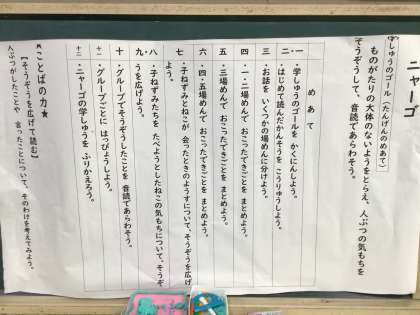 ニャーゴ
学しゅうのゴール(たんげんのめあて)
ものがたりの大体のないようをとらえ、人ぶつの気もちを
そうぞうして、音読であらわそう。
めあて
一 ・学しゅうのゴールを かくにんしよう。
二 ・はじめて読んだかんそうを こうりゅうしよう。
三 ・お話を いくつかの場めんに分けよう。
四 ・一・二場めんで おこったできごとを まとめよう。
五 ・三場めんで おこったできごとを まとめよう。
六 ・四・五場めんで おこったできごとを まとめよう。
七 ・子ねずみとねこが 会ったときのようすについて、そうぞうを広げ
よう。
八 ・子ねずみたちを たべようとしたねこの気もちについて、そうぞ
九 うを広げよう。
十 ・グループでそうぞうしたことを 音読であらわそう。
十一 ・グループごとに はっぴょうしよう。
十二 ・ニャーゴの学しゅうを ふりかえろう。
★ことばの力★
【そうぞうを広げて読む】
人ぶつがしたことや 言ったことについて、そのわけを考えてみよう。